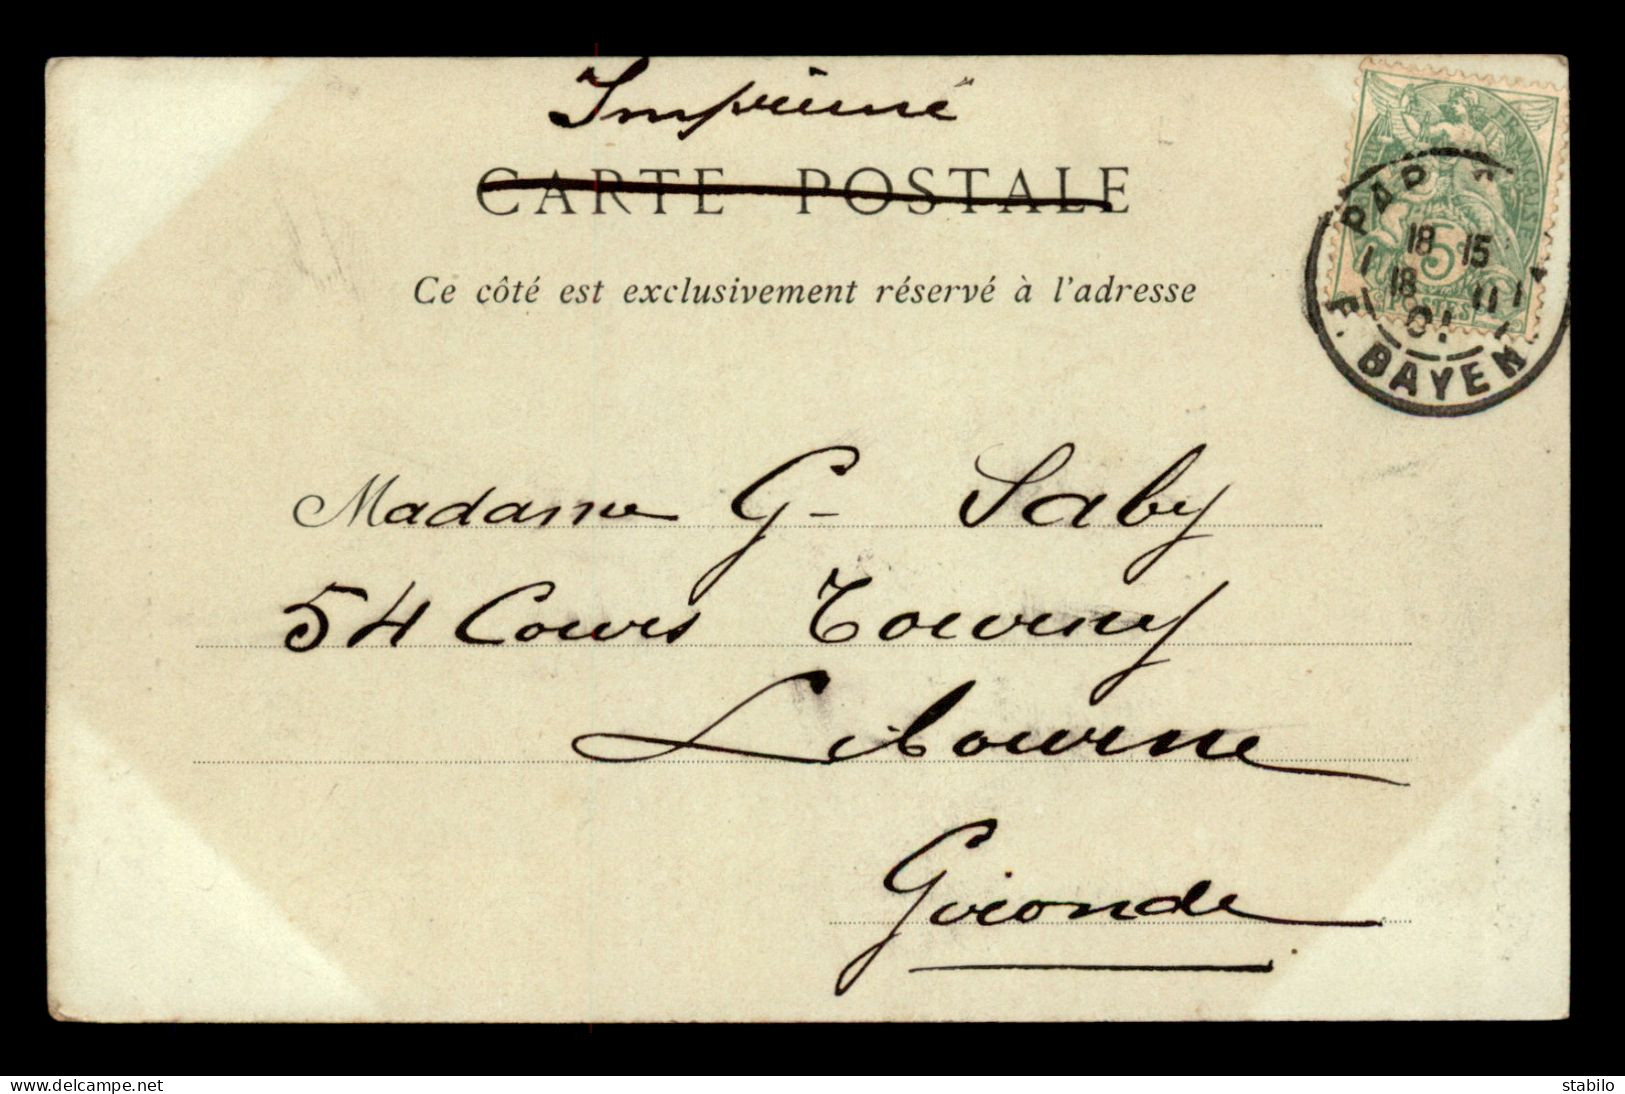 Imprimé
CARTE POSTALE
Ce côté est exclusivement réservé à l'adresse
18 15
18 11
01
Madame G- Saby
54 Cours Tourny
Libourne
Gironde
5
POSTES
www.delcampe.net
stabilo